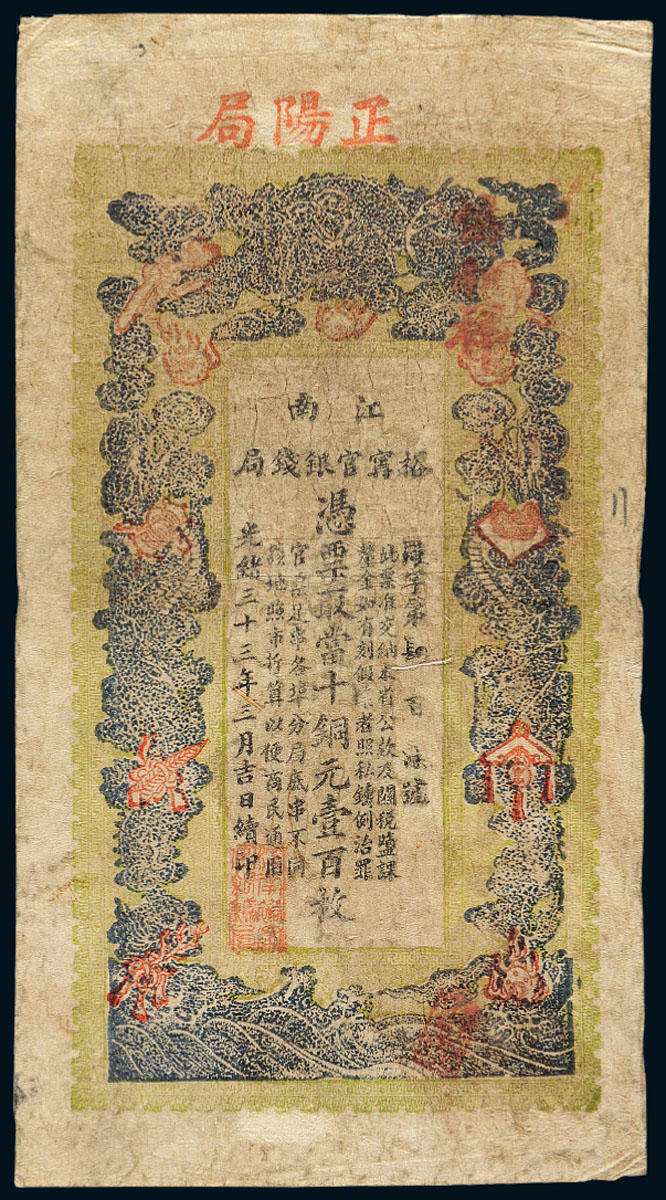 正陽局
江南
裕寧官銀錢局
字第肆百號
此票准交納本省公款及關稅鹽課
釐金如有刻假者照私鑄例治罪
憑票取當十銅元壹百枚
官票足串各埠分局底串不同
地照市折算以便商民通用
光緒三十三年三月吉日續印